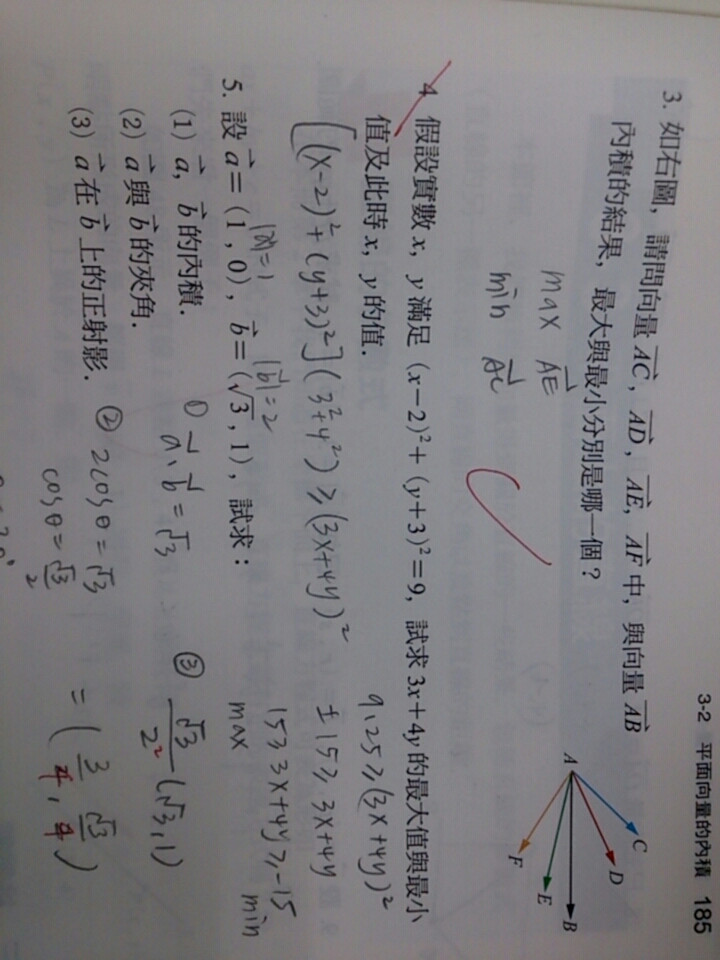 3-2 平面向量的內積 185
3. 如右圖，請問向量 AC, AD, AE, AF 中，與向量 AB
內積的結果，最大與最小分別是哪一個？
C
D
B
E
F
A
max AE
min AC
4. 假設實數 x, y 滿足 (x−2)²+(y+3)²=9, 試求 3x+4y 的最大值與最小
值及此時 x, y 的值.
[(x-2)²+(y+3)²](3²+4²)≥(3x+4y)²
9.25≥(3x+4y)²
±15≥3x+4y
15≥3x+4y≥-15
max min
|a|=1 |b|=2
5. 設 a=(1, 0), b=(√3, 1), 試求：
(1) a, b 的內積.
(2) a 與 b 的夾角.
(3) a 在 b 上的正射影.
① a·b=√3
② 2cosθ=√3
cosθ=√3/2
③ √3/2²(√3,1)
=(3/4, √3/4)